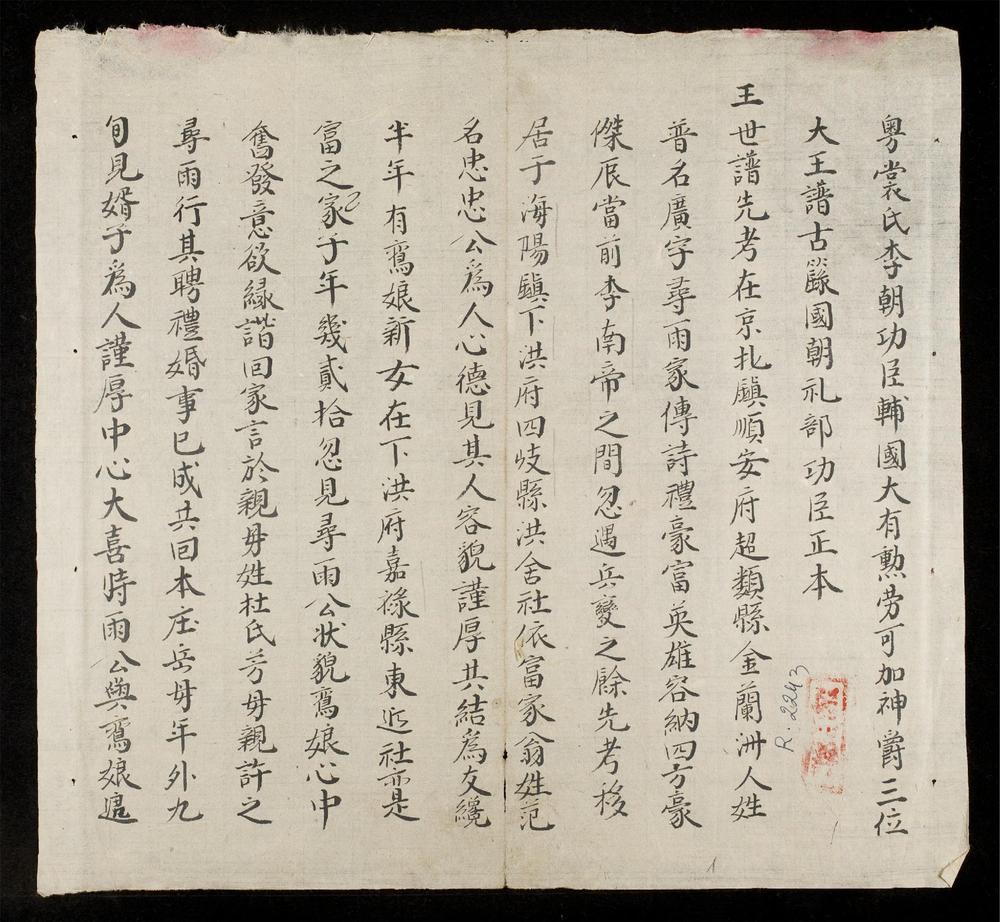 粵裳氏李朝功臣輔國大有勲劳可加神爵三位
大王譜古籙國朝礼部功臣正本
王世譜先考在京北鎭順安府超類縣金蘭洲人姓
普名廣字尋雨家傳詩禮豪富英雄容納四方豪
傑辰當前李南帝之間忽遇兵變之餘先考移
居于海陽鎭下洪府四岐縣洪舍社依富家翁姓范
名忠忠公爲人心德見其人容貌謹厚共結爲友纔
半年有鸞娘新女在下洪府嘉祿縣東近社亦是
富之家子年幾貳拾忽見尋雨公状貌鸞娘心中
奮發意欲緣諧回家言於親毋姓杜氏芳毋親許之
尋雨行其聘禮婚事已成共回本庄岳毋年外九
旬見婿子爲人謹厚中心大喜時雨公與鸞娘還
R.2243